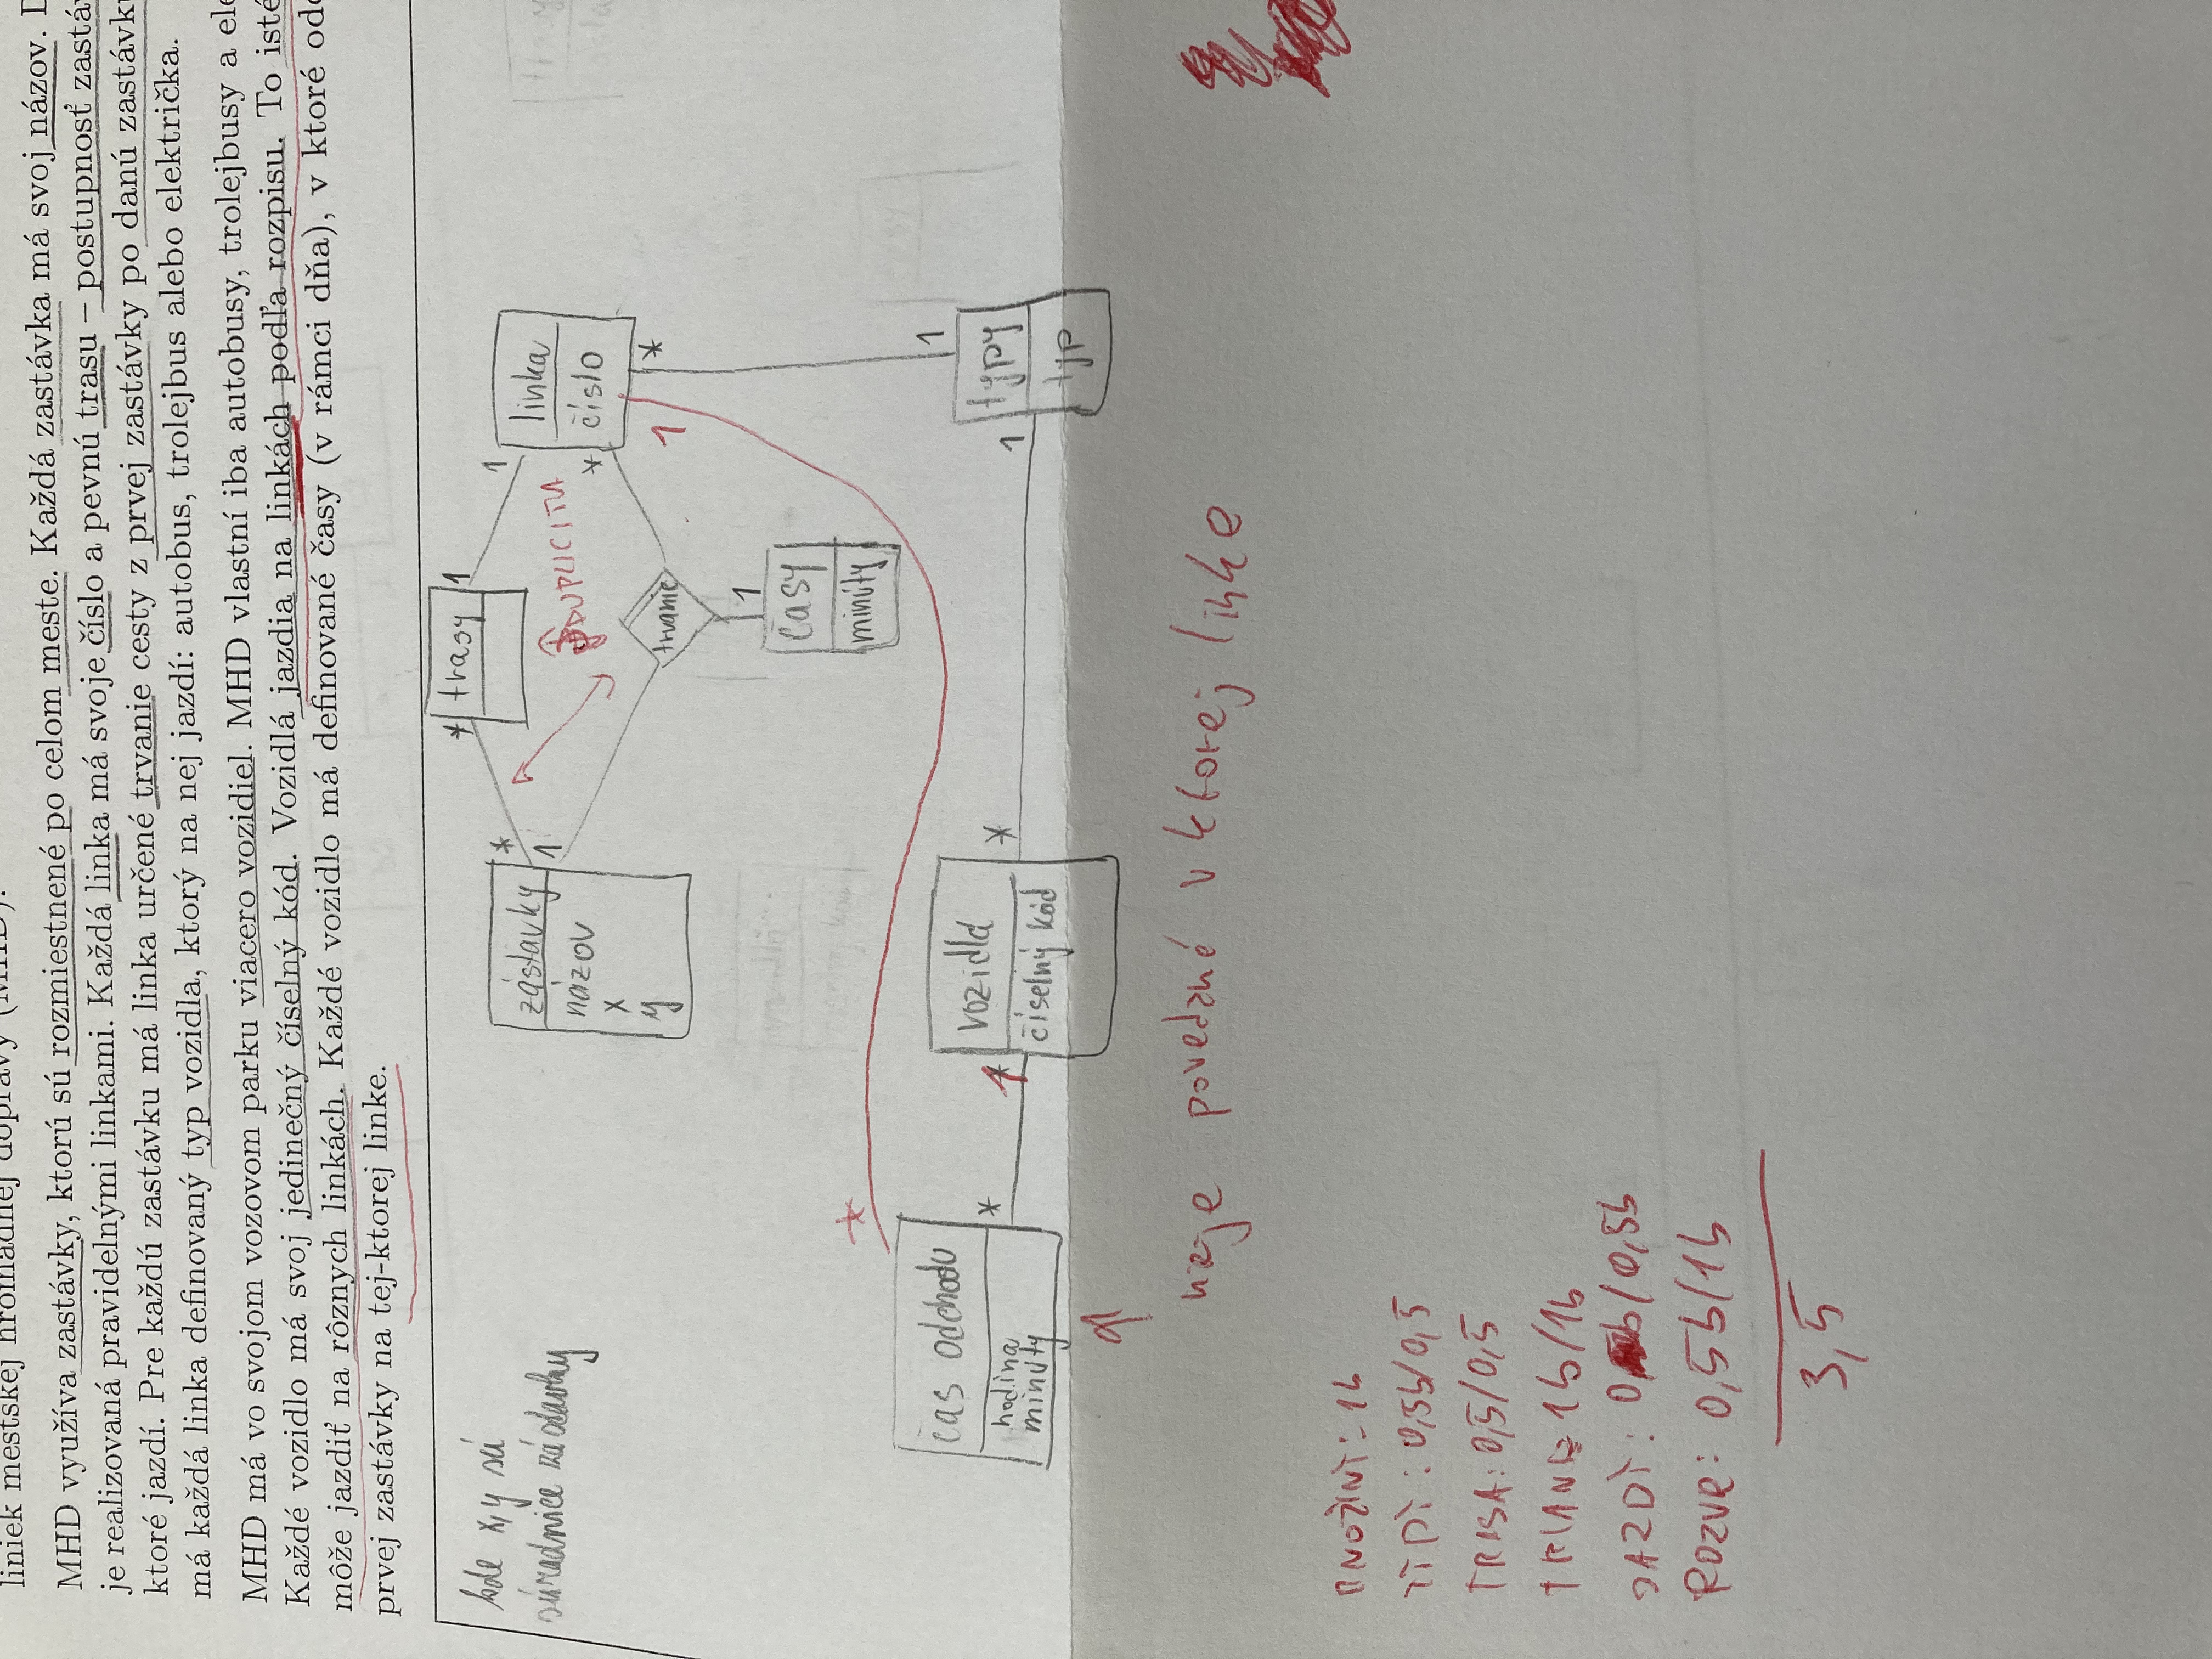 liniek mestskej hromadnej dopravy (MHD).
MHD využíva zastávky, ktorú sú rozmiestnené po celom meste. Každá zastávka má svoj názov. D
je realizovaná pravidelnými linkami. Každá linka má svoje číslo a pevnú trasu – postupnosť zastáv
ktoré jazdí. Pre každú zastávku má linka určené trvanie cesty z prvej zastávky po danú zastávku
má každá linka definovaný typ vozidla, ktorý na nej jazdí: autobus, trolejbus alebo električka.
MHD má vo svojom vozovom parku viacero vozidiel. MHD vlastní iba autobusy, trolejbusy a ele
Každé vozidlo má svoj jedinečný číselný kód. Vozidlá jazdia na linkách podľa rozpisu. To isté
môže jazdiť na rôznych linkách. Každé vozidlo má definované časy (v rámci dňa), v ktoré odc
prvej zastávky na tej-ktorej linke.
kde x, y sú
súradnice zástavky
* trasy 1
* 1
zástavky
názov
x
y
1
DUPLICITA
linka
číslo
*
trvanie
1
*
1
časy
minúty
*
1
čas odchodu
hodina
minúty
*
1
vozidlá
číselný kód
*
1
typy
typ
nieje povedané v ktorej linke
MNOŽINY: 1b
TYPY: 0,5b/0,5
TRASA: 0,5/0,5
TRVANIE 1b/1b
JAZDY: 0 b/0,5b
ROZVR: 0,5b/1b
3,5